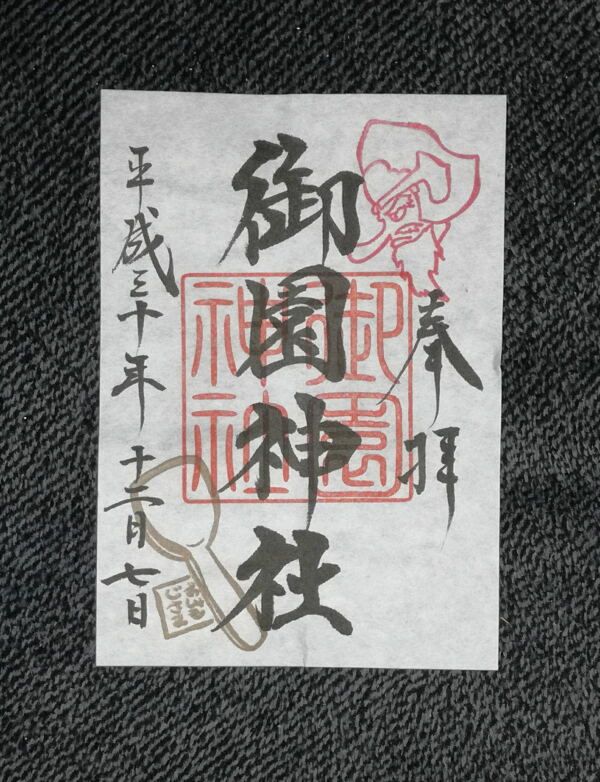 奉拝
御園神社
御園神社
平成三十年十二月七日
おんぞ
じさま